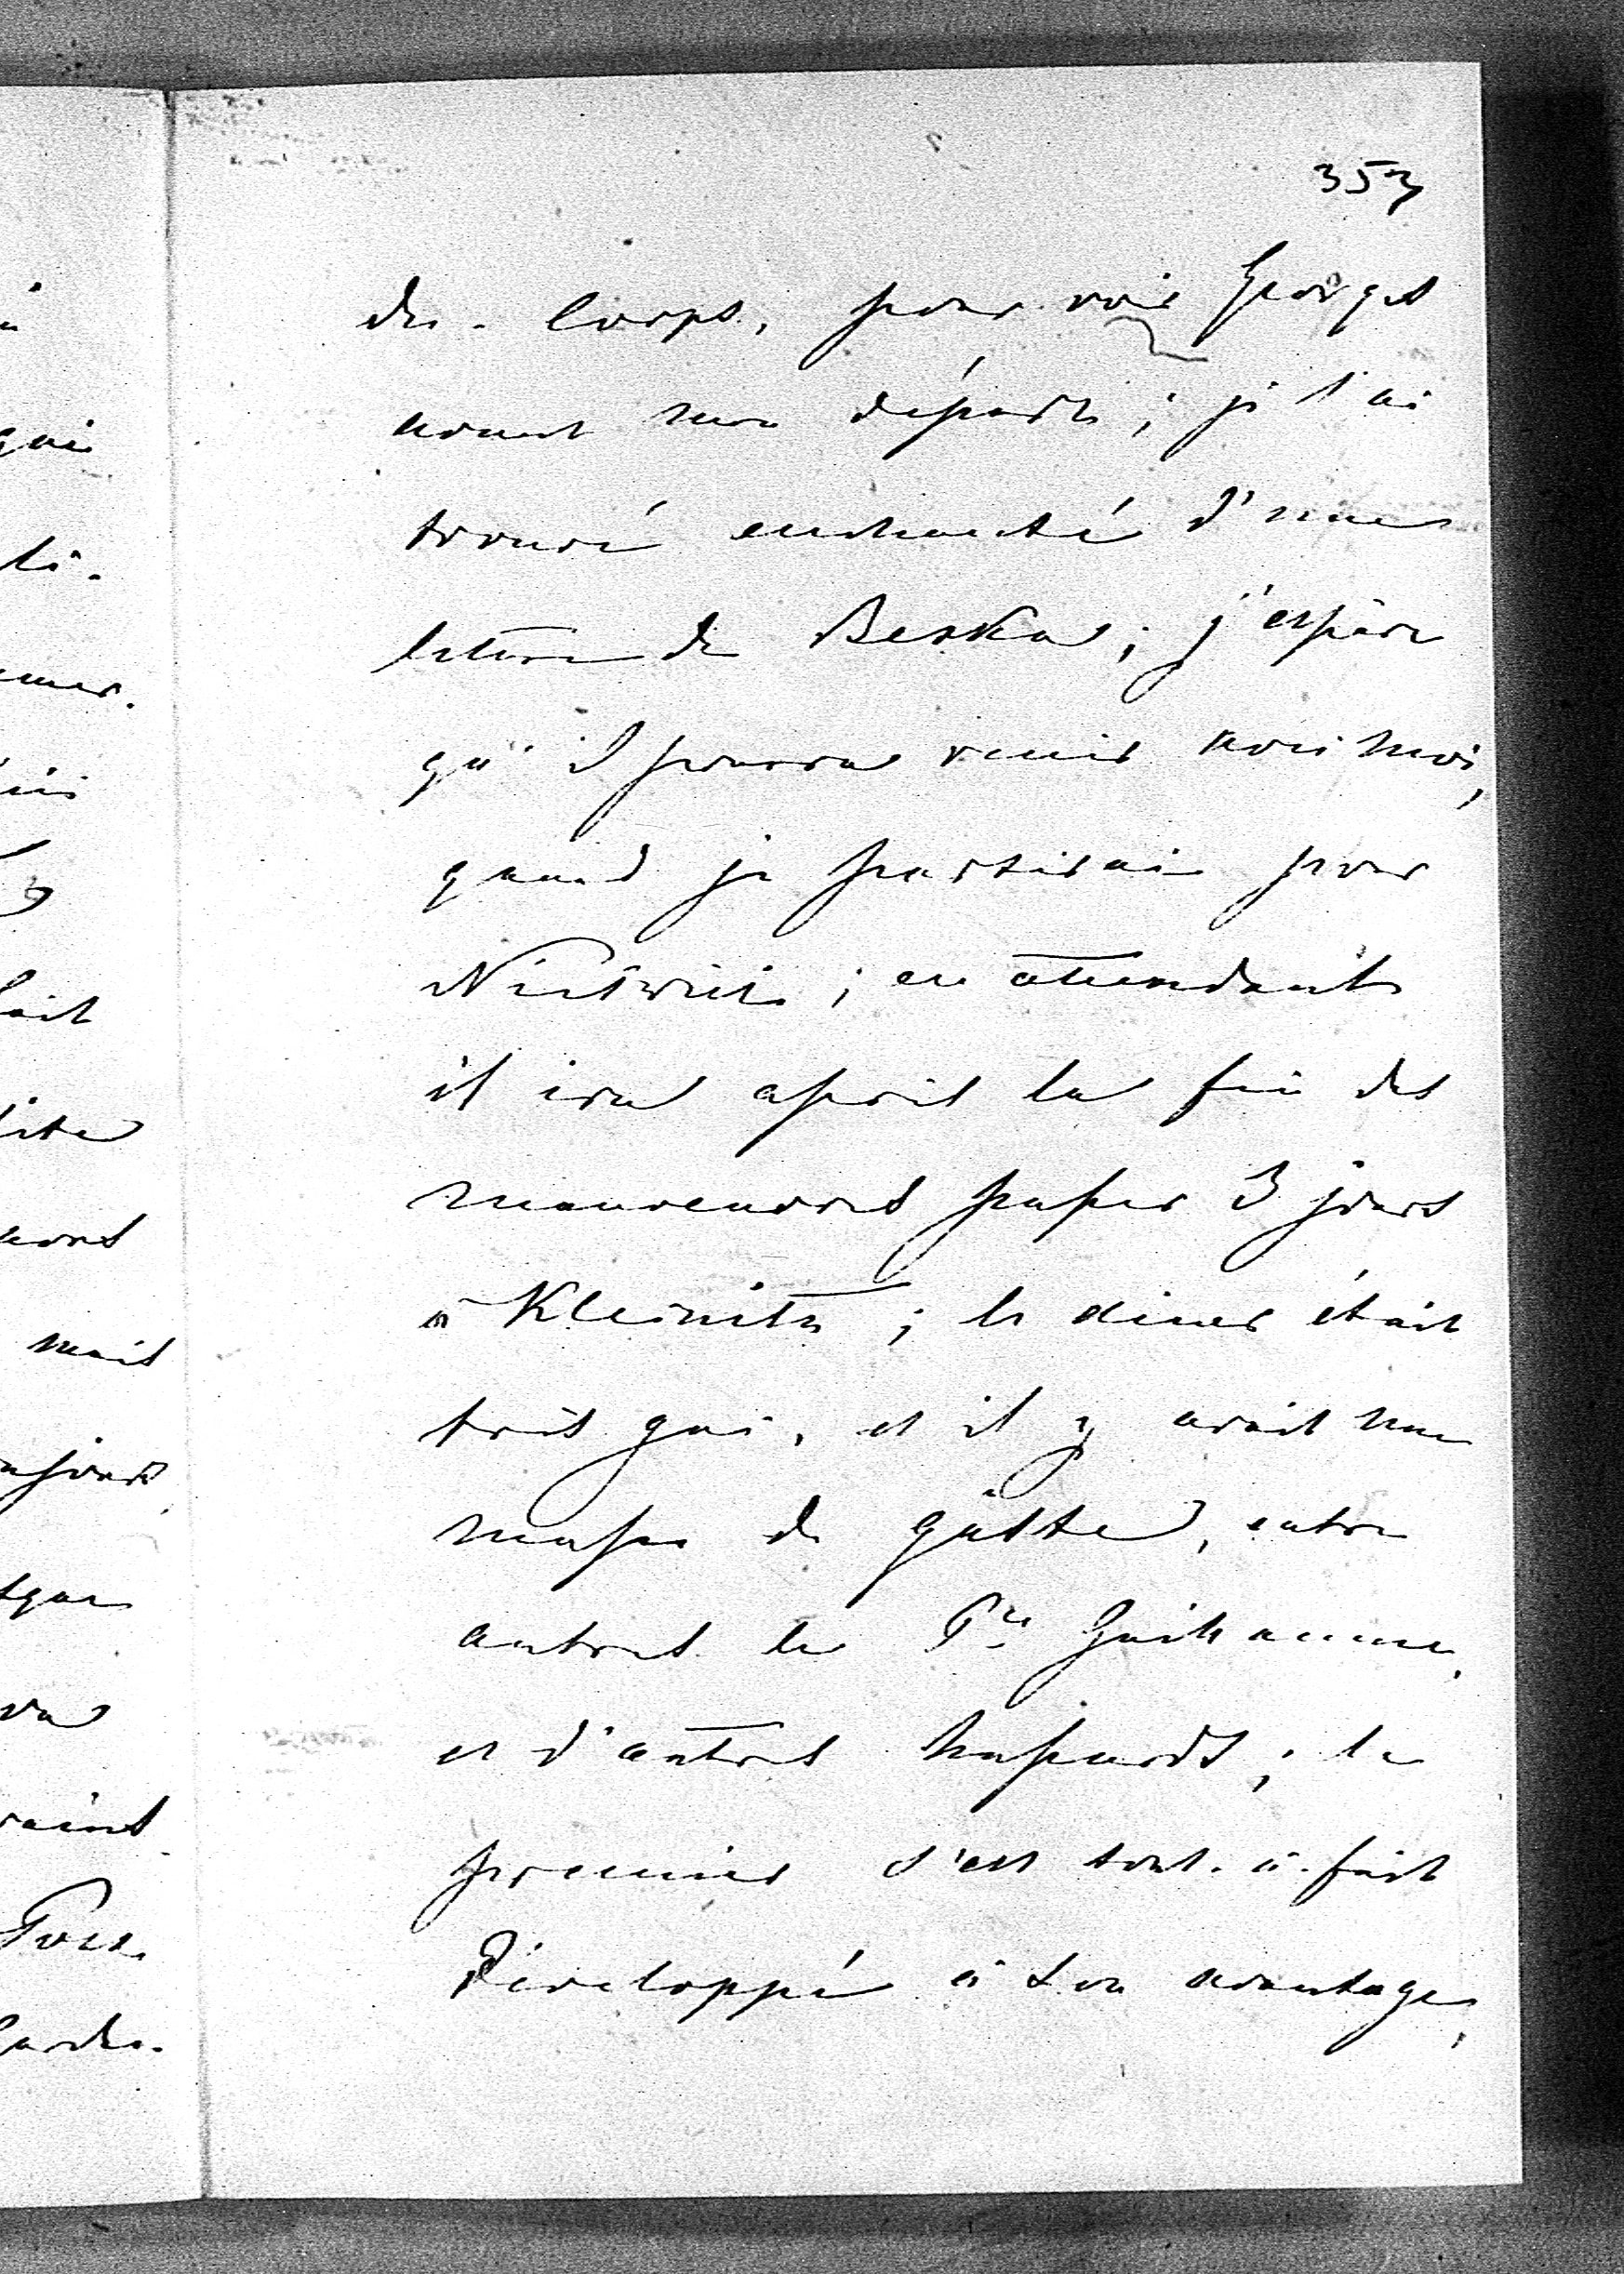 353
du-Corps, pour voir Georges
avant mon départ; je l'ai
trouvé enchanté d'une
lettre de Beska; j'espère
qu'il pourra venir avec moi,
quand je partirai pour
Nieświeź; en attendant
il ira après la fin des
manœuvres passer 3 jours
à Kleinitz; le diner était
très gai, et il y avait une
masse de gäste, entre
autres le Pce Guillaume,
et d'autres husards; le
premier s'est tout-à-fait
développé à son avantage,
qui
là.
mais